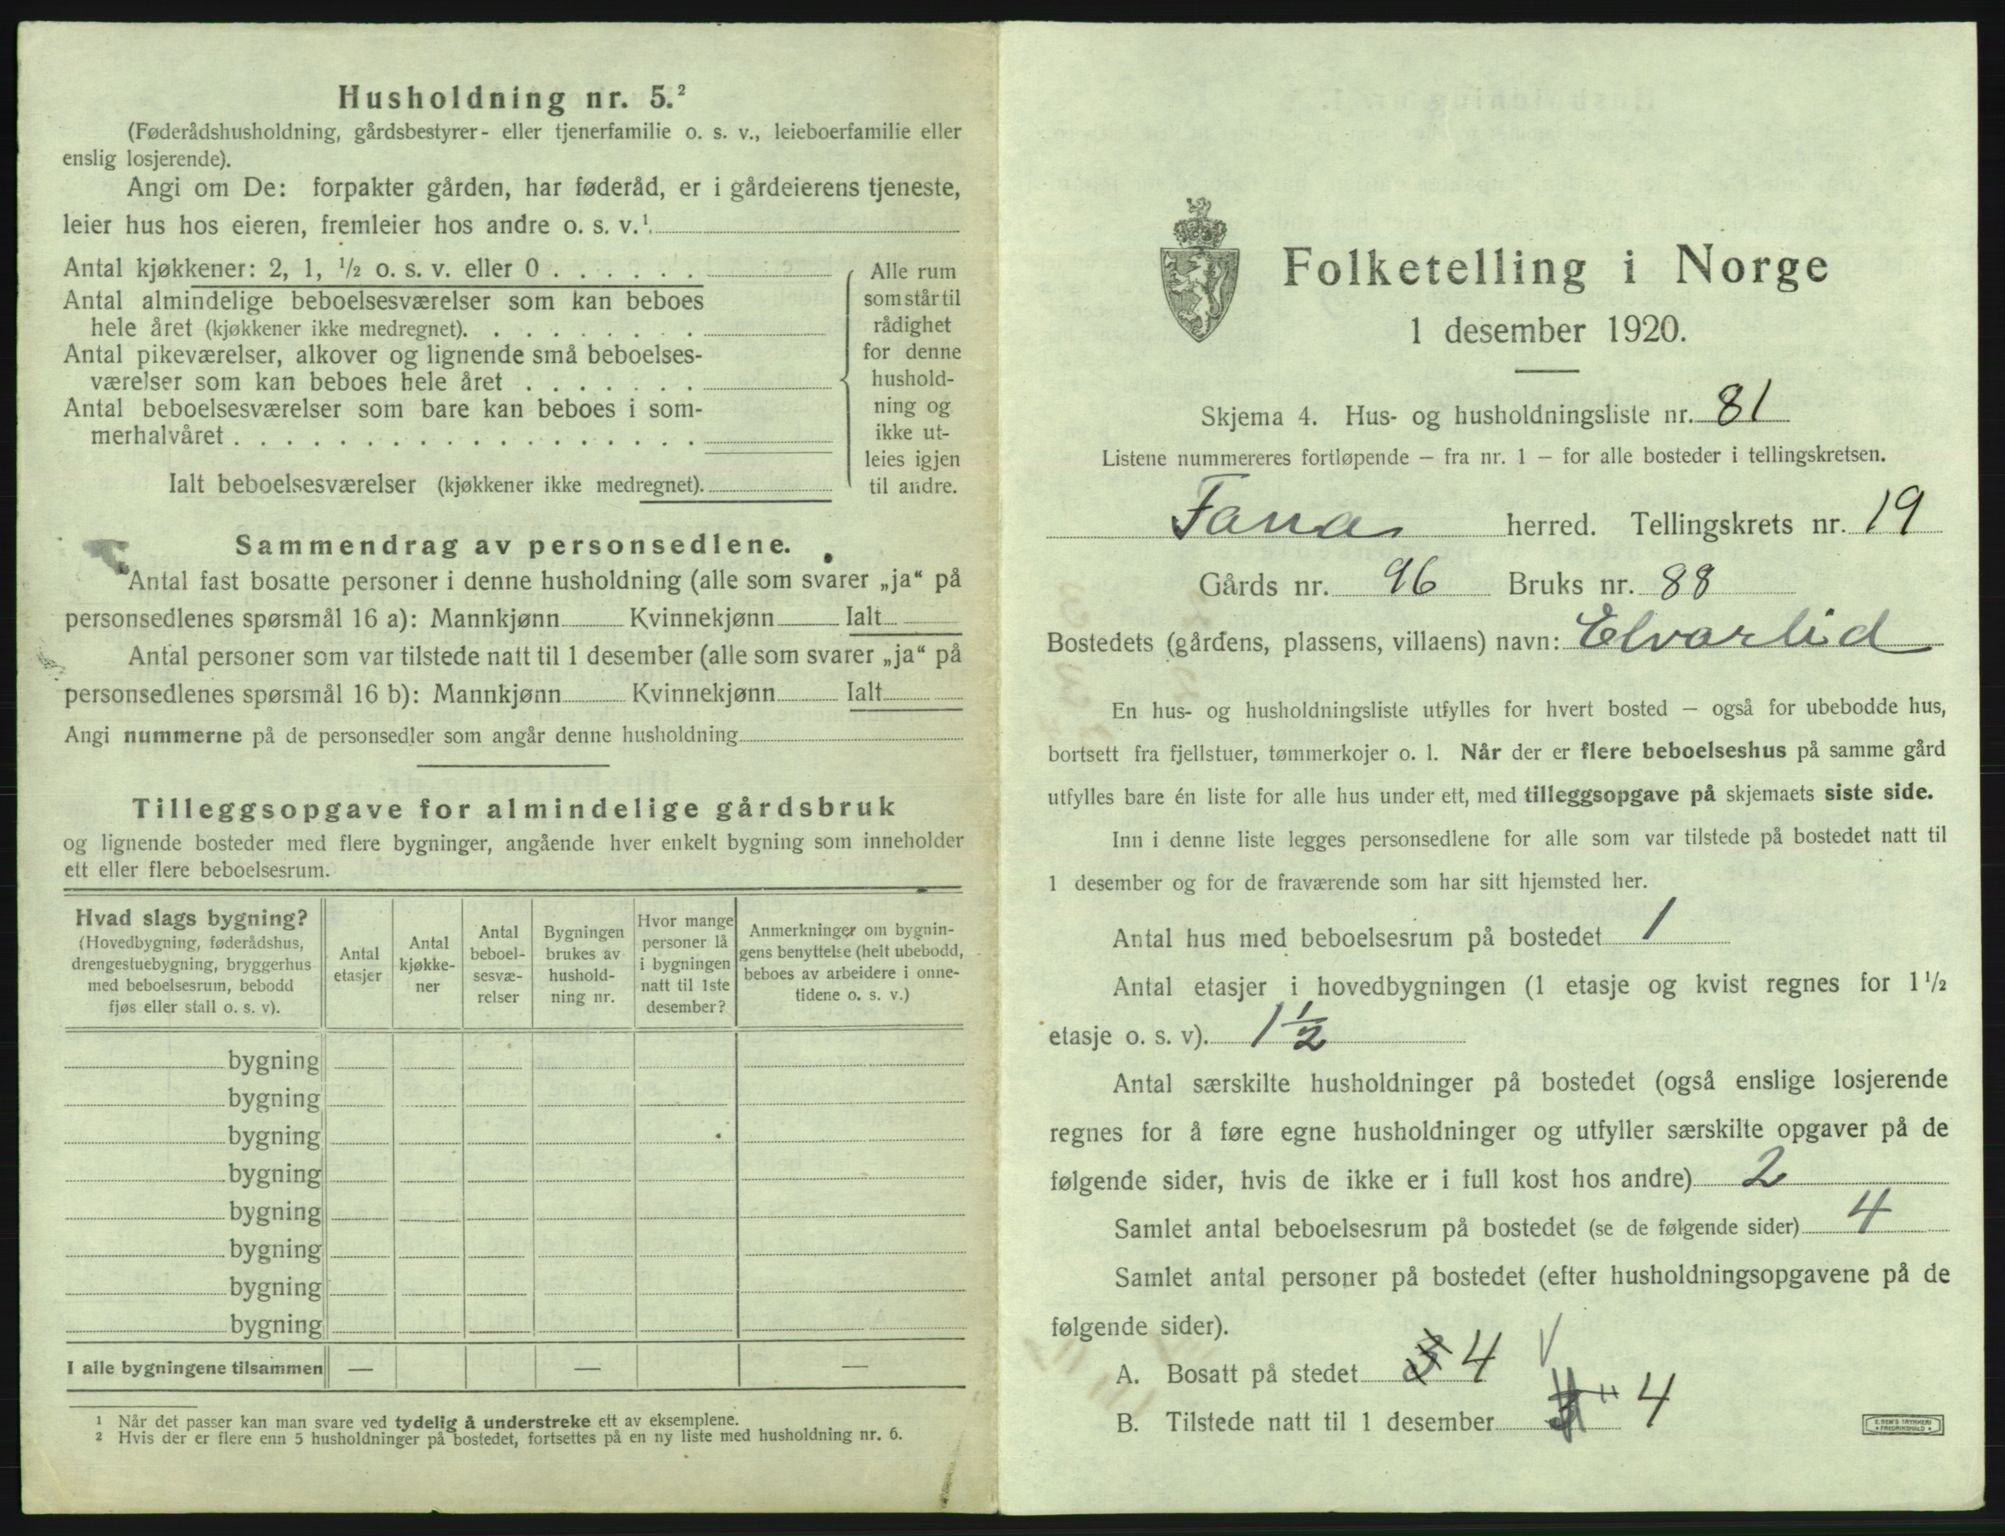 Husholdning nr. 5.²
(Føderådshusholdning, gårdsbestyrer- eller tjenerfamilie o. s. v., leieboerfamilie eller
enslig losjerende).
Angi om De: forpakter gården, har føderåd, er i gårdeierens tjeneste,
leier hus hos eieren, fremleier hos andre o. s. v.¹
Antal kjøkkener: 2, 1, ½ o. s. v. eller 0 . . . . . .
Antal almindelige beboelsesværelser som kan beboes
hele året (kjøkkener ikke medregnet). . . . . . . . .
Antal pikeværelser, alkover og lignende små beboelses-
værelser som kan beboes hele året . . . . . . .
Antal beboelsesværelser som bare kan beboes i som-
merhalvåret . . . . . . . . . . . . . . . . . .
Ialt beboelsesværelser (kjøkkener ikke medregnet).
Alle rum
som står til
rådighet
for denne
hushold-
ning og
ikke ut-
leies igjen
til andre.
Sammendrag av personsedlene.
Antal fast bosatte personer i denne husholdning (alle som svarer „ja“ på
personsedlenes spørsmål 16 a): Mannkjønn Kvinnekjønn Ialt
Antal personer som var tilstede natt til 1 desember (alle som svarer „ja“ på
personsedlenes spørsmål 16 b): Mannkjønn Kvinnekjønn Ialt
Angi nummerne på de personsedler som angår denne husholdning
Tilleggsopgave for almindelige gårdsbruk
og lignende bosteder med flere bygninger, angående hver enkelt bygning som inneholder
ett eller flere beboelsesrum.
Hvad slags bygning?
(Hovedbygning, føderådshus,
drengestuebygning, bryggerhus
med beboelsesrum, bebodd
fjøs eller stall o. s. v).
Antal
etasjer
Antal
kjøkke-
ner
Antal
beboel-
sesvæ-
relser
Bygningen
brukes av
hushold-
ning nr.
Hvor mange
personer lå
i bygningen
natt til 1ste
desember?
Anmerkninger om bygnin-
gens benyttelse (helt ubebodd,
beboes av arbeidere i onne-
tidene o. s. v.)
bygning
bygning
bygning
bygning
bygning
bygning
bygning
bygning
I alle bygningene tilsammen — — —
¹ Når det passer kan man svare ved tydelig å understreke ett av eksemplene.
² Hvis der er flere enn 5 husholdninger på bostedet, fortsettes på en ny liste med husholdning nr. 6.
Folketelling i Norge
1 desember 1920.
Skjema 4. Hus- og husholdningsliste nr. 81
Listene nummereres fortløpende – fra nr. 1 – for alle bosteder i tellingskretsen.
Fana herred. Tellingskrets nr. 19
Gårds nr. 96 Bruks nr. 88
Bostedets (gårdens, plassens, villaens) navn: Elvarlid
En hus- og husholdningsliste utfylles for hvert bosted – også for ubebodde hus,
bortsett fra fjellstuer, tømmerkojer o. l. Når der er flere beboelseshus på samme gård
utfylles bare én liste for alle hus under ett, med tilleggsopgave på skjemaets siste side.
Inn i denne liste legges personsedlene for alle som var tilstede på bostedet natt til
1 desember og for de fraværende som har sitt hjemsted her.
Antal hus med beboelsesrum på bostedet 1
Antal etasjer i hovedbygningen (1 etasje og kvist regnes for 1½
etasje o. s. v). 1½
Antal særskilte husholdninger på bostedet (også enslige losjerende
regnes for å føre egne husholdninger og utfyller særskilte opgaver på de
følgende sider, hvis de ikke er i full kost hos andre) 2
Samlet antal beboelsesrum på bostedet (se de følgende sider) 4
Samlet antal personer på bostedet (efter husholdningsopgavene på de
følgende sider).
A. Bosatt på stedet 4
B. Tilstede natt til 1 desember 4